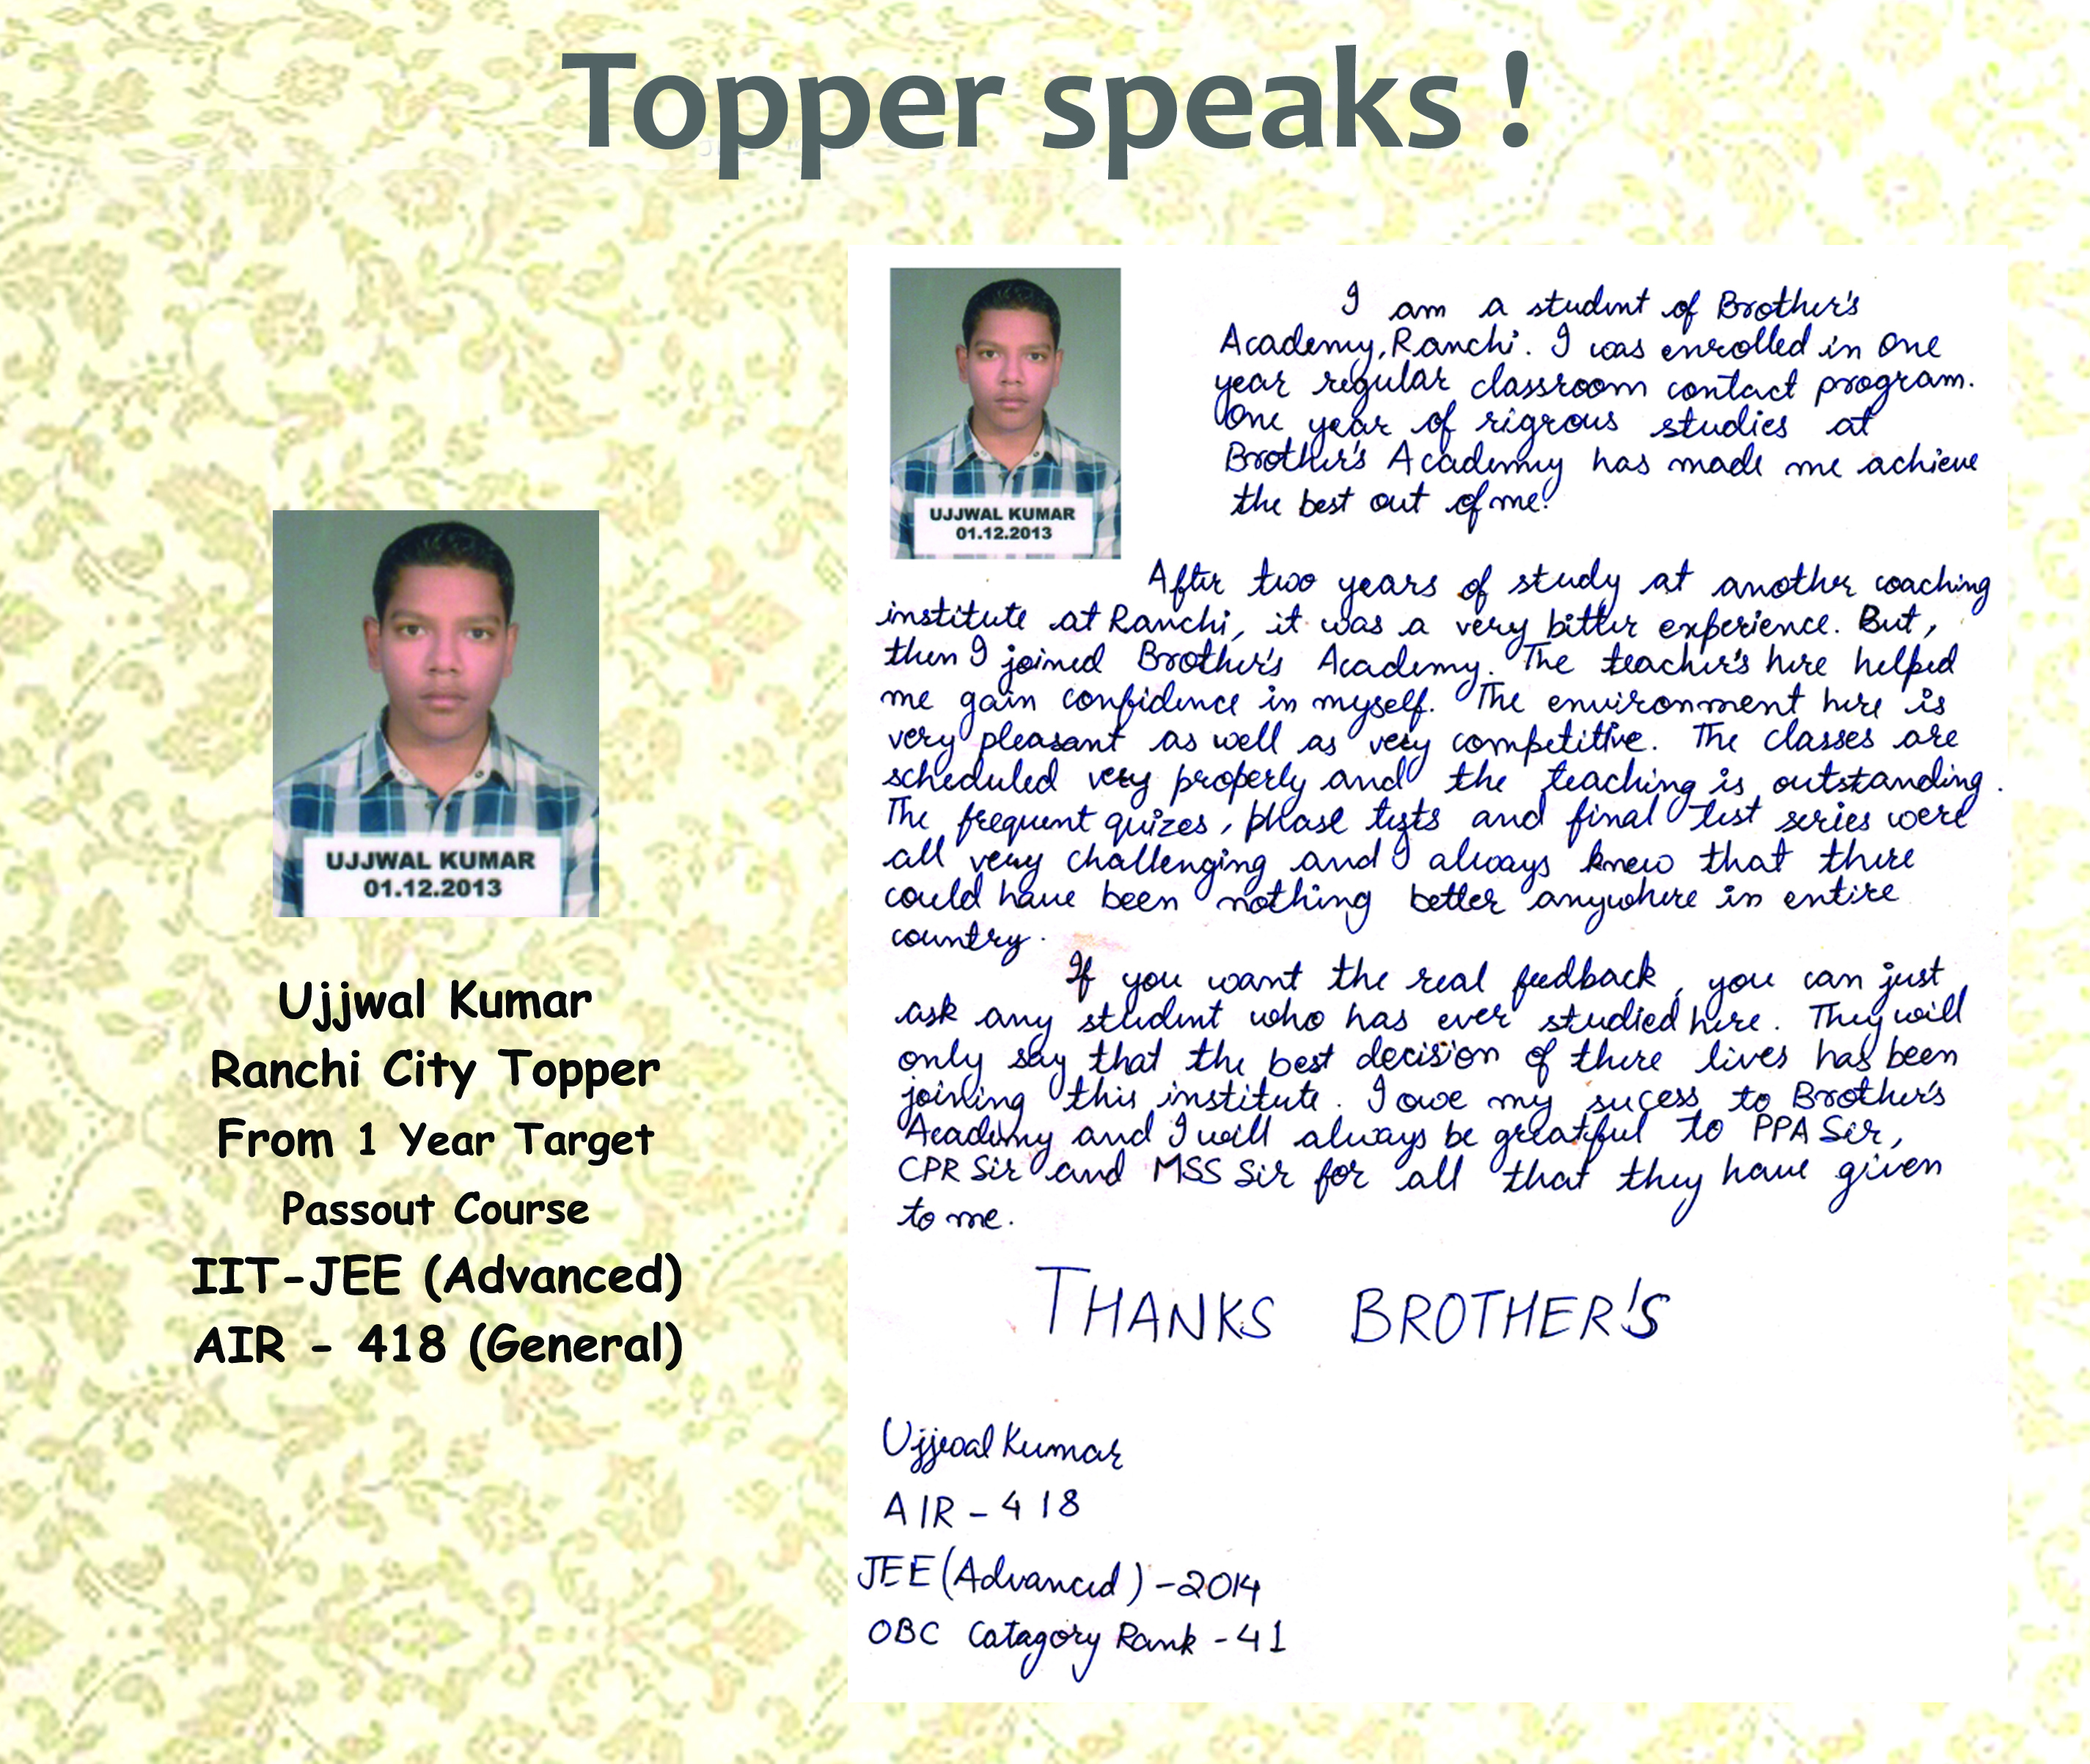 Topper speaks !
UJJWAL KUMAR
01.12.2013
Ujjwal Kumar
Ranchi City Topper
From 1 Year Target
Passout Course
IIT-JEE (Advanced)
AIR - 418 (General)
UJJWAL KUMAR
01.12.2013
I am a student of Brother's
Academy, Ranchi. I was enrolled in one
year regular classroom contact program.
One year of rigrous studies at
Brother's Academy has made me achieve
the best out of me!
After two years of study at another coaching
institute at Ranchi, it was a very bitter experience. But,
then I joined Brother's Academy. The teacher's here helped
me gain confidence in myself. The environment here is
very pleasant as well as very competitive. The classes are
scheduled very properly and the teaching is outstanding.
The frequent quizes, phase tests and final test series were
all very challenging and I always knew that there
could have been nothing better anywhere in entire
country.
If you want the real feedback, you can just
ask any student who has ever studied here. They will
only say that the best decision of there lives has been
joining this institute. I owe my sucess to Brother's
Academy and I will always be greatful to PPA Sir,
CPR Sir and MSS Sir for all that they have given
to me.
THANKS BROTHER'S
Ujjwal Kumar
AIR - 418
JEE (Advanced) - 2014
OBC Catagory Rank - 41